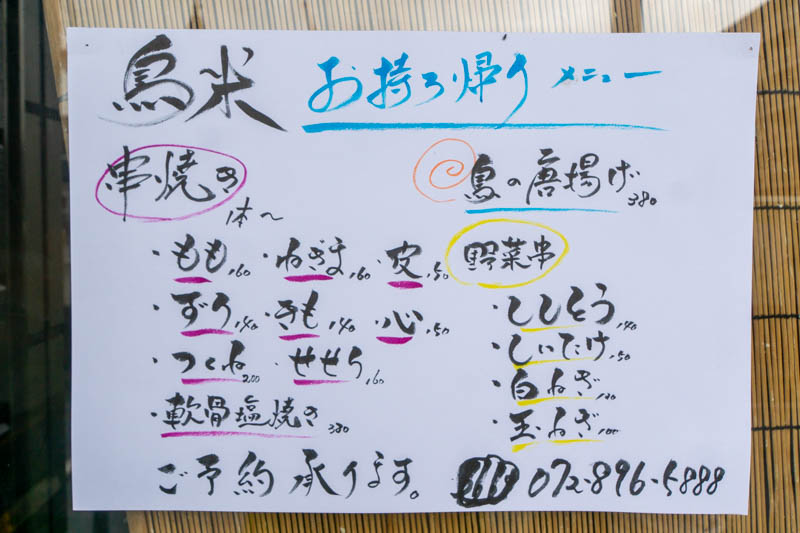 鳥米 お持ち帰り メニュー
串焼き 1本〜
・もも 160 ・ねぎま 160 ・皮 150
・ずり 140 ・きも 140 ・心 150
・つくね 200 ・せせり 160
・軟骨塩焼き 380
鳥の唐揚げ 380
野菜串
・ししとう 140
・しいたけ 150
・白ねぎ
・玉ねぎ 100
ご予約承ります。 072-896-5888